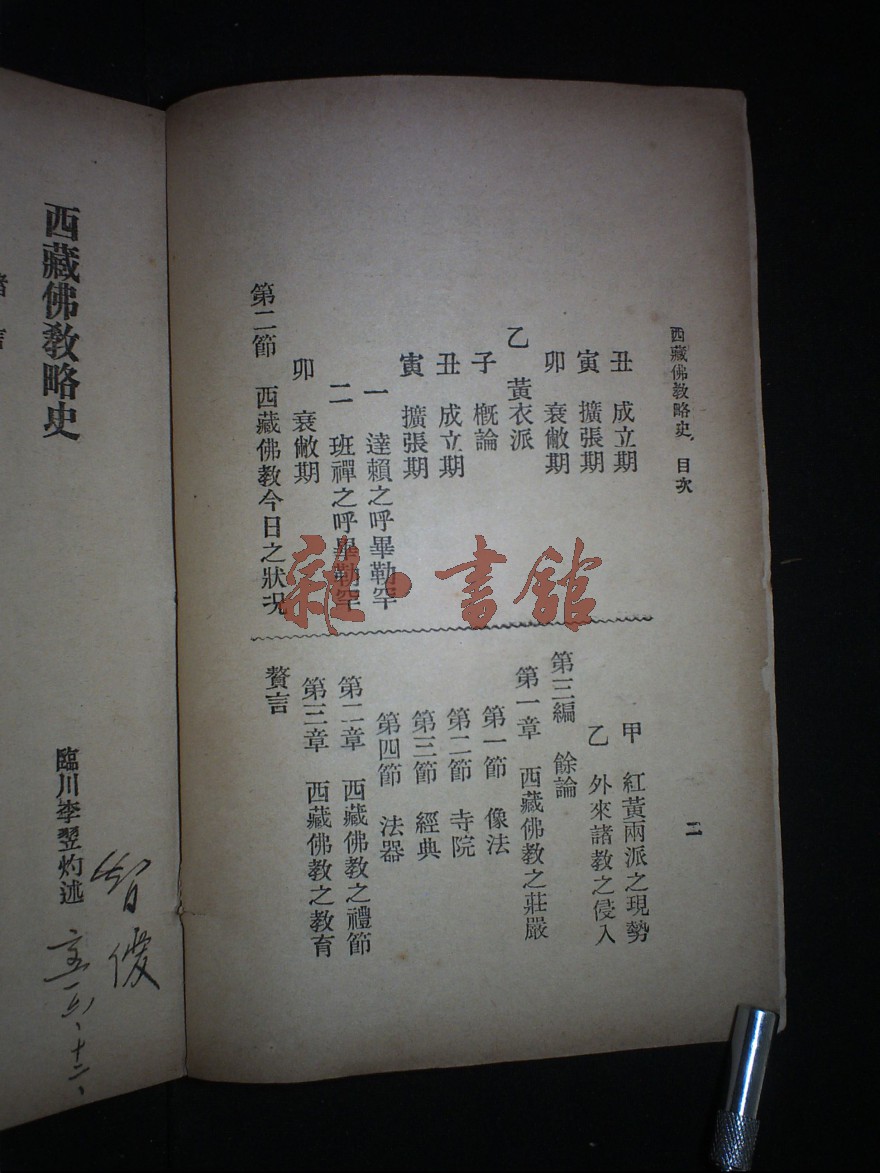 西藏佛教略史 目次
丑 成立期
寅 擴張期
卯 衰敝期
乙 黃衣派
子 概論
丑 成立期
寅 擴張期
一 達賴之呼畢勒罕
二 班禪之呼畢勒罕
卯 衰敝期
第二節 西藏佛教今日之狀况
甲 紅黃兩派之現勢
乙 外來諸教之侵入
第三編 餘論
第一章 西藏佛教之莊嚴
第一節 像法
第二節 寺院
第三節 經典
第四節 法器
第二章 西藏佛教之禮節
第三章 西藏佛教之教育
贅言
二
西藏佛教略史
臨川李翊灼述
智俊
雜·書館